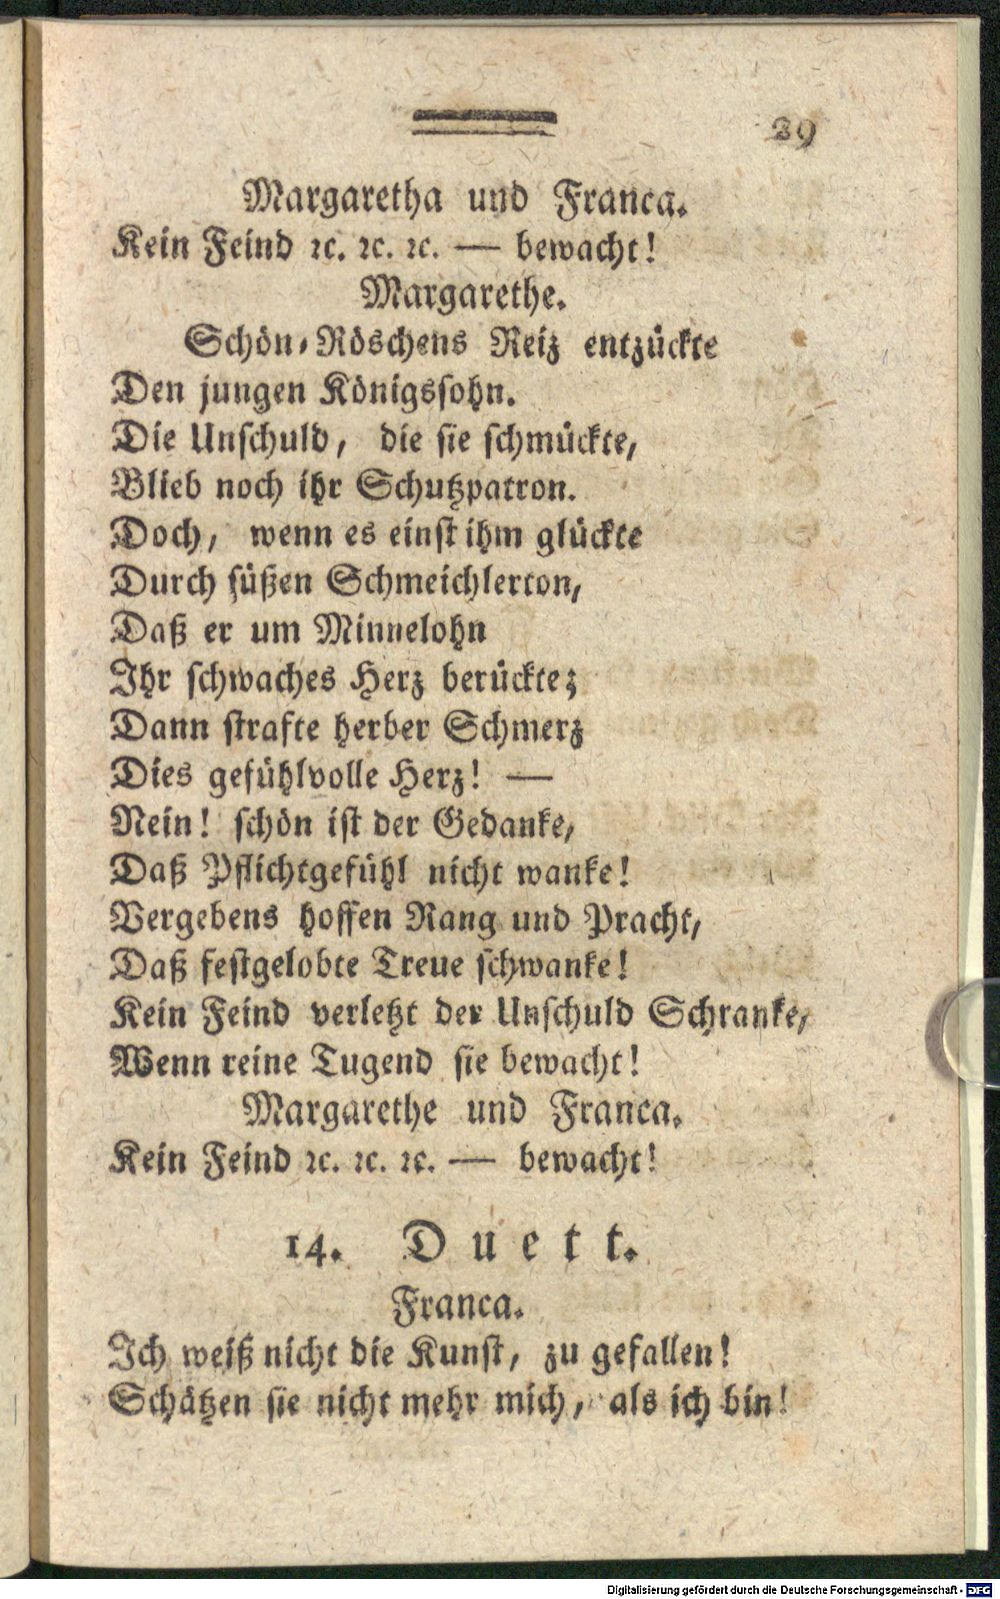 29
Margaretha und Franca.
Kein Feind ꝛc. ꝛc. ꝛc. — bewacht!
Margarethe.
Schön-Röschens Reiz entzückte
Den jungen Königssohn.
Die Unschuld, die sie schmückte,
Blieb noch ihr Schutzpatron.
Doch, wenn es einst ihm glückte
Durch süßen Schmeichlerton,
Daß er um Minnelohn
Ihr schwaches Herz berückte;
Dann strafte herber Schmerz
Dies gefühlvolle Herz! —
Nein! schön ist der Gedanke,
Daß Pflichtgefühl nicht wanke!
Vergebens hoffen Rang und Pracht,
Daß festgelobte Treue schwanke!
Kein Feind verletzt der Unschuld Schranke,
Wenn reine Tugend sie bewacht!
Margarethe und Franca.
Kein Feind ꝛc. ꝛc. ꝛc. — bewacht!
14. Duett.
Franca.
Ich weiß nicht die Kunst, zu gefallen!
Schätzen sie nicht mehr mich, als ich bin!
Digitalisierung gefördert durch die Deutsche Forschungsgemeinschaft - DFG